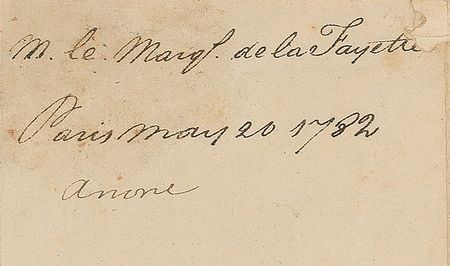 M. le Marqs. de la Fayette
Paris May 20 1782